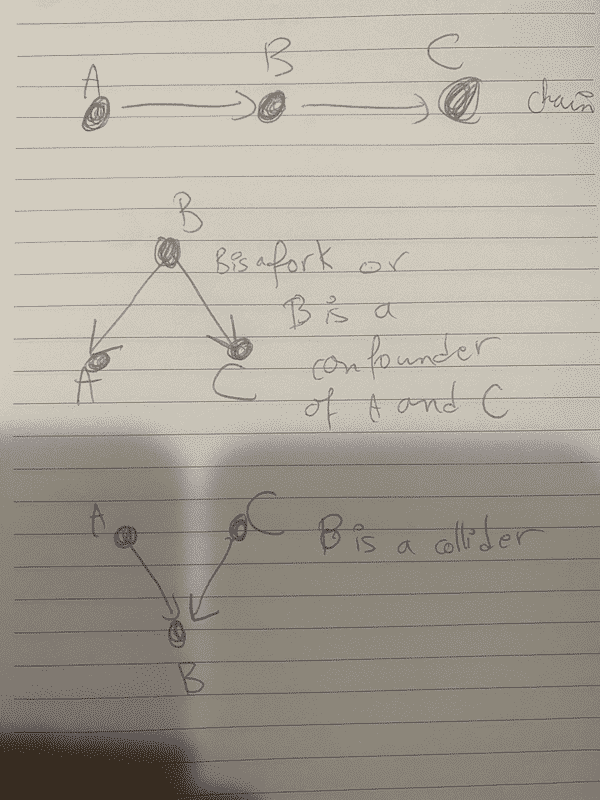 A B C
chain
B
B is a fork or
B is a
confounder
A C of A and C
A C B is a collider
B